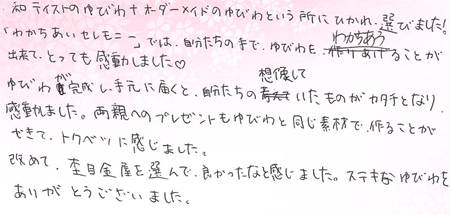 和テイストのゆびわ+オーダーメイドのゆびわという所にひかれ、選びました!
「わかちあいセレモニー」では、自分たちの手で、ゆびわを わかちあうことが
出来て、とっても感動しました♡
ゆびわが完成し、手元に届くと、自分たちの想像していたものがカタチとなり、
感動しました。両親へのプレゼントもゆびわと同じ素材で、作ることが
できて、トクベツに感じました。
改めて、杢目金屋を選んで、良かったなと感じました。ステキなゆびわを
ありがとうございました。